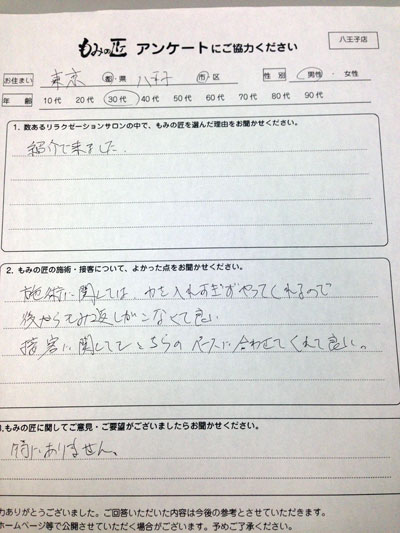 八王子店
もみの匠 アンケートにご協力ください
お住まい 東京 都・県 八王子 市・区 性別 男性・女性
年齢 10代 20代 30代 40代 50代 60代 70代 80代 90代
1. 数あるリラクゼーションサロンの中で、もみの匠を選んだ理由をお聞かせください。
紹介で来ました。
2. もみの匠の施術・接客について、よかった点をお聞かせください。
施術に関しては、力を入れすぎずやってくれるので
後からもみ返しがこなくて良い
接客に関してもこちらのペースに合わせてくれて良い。
3.もみの匠に関してご意見・ご要望がございましたらお聞かせください。
特にありません。
力ありがとうございました。ご回答いただいた内容は今後の参考とさせていただきます。
ホームページ等で公開させていただく場合がございます。予めご了承ください。